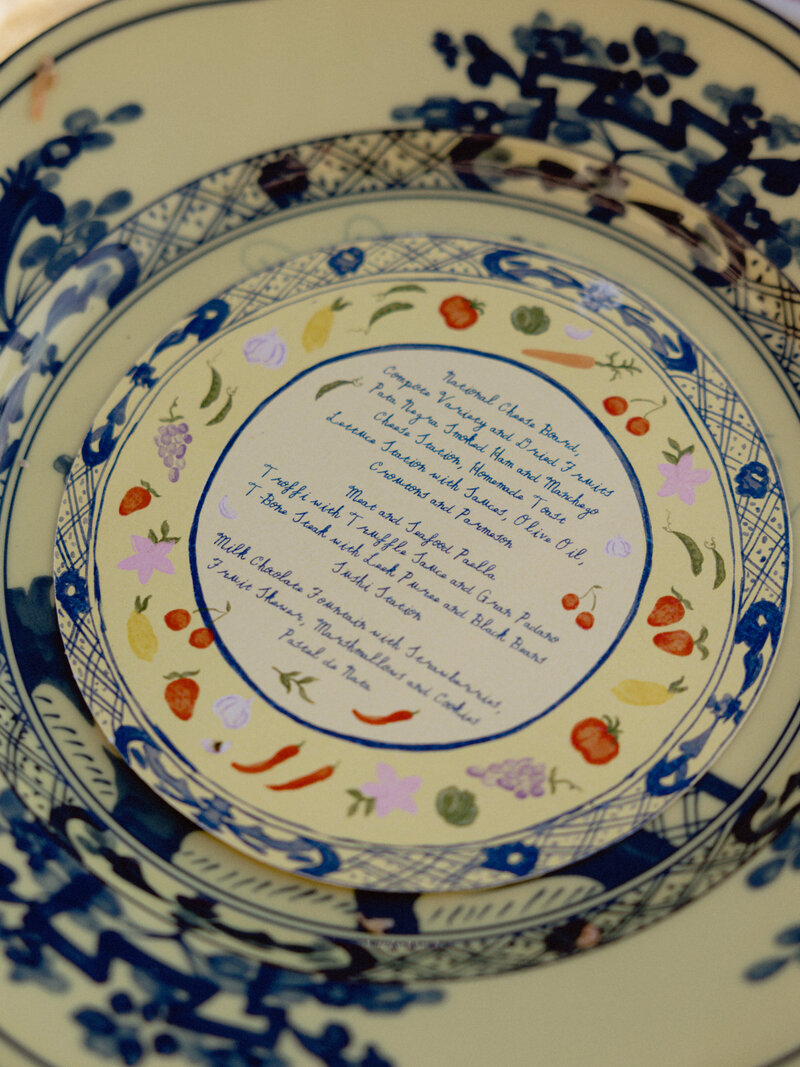 National Cheese Board,
Compote Variety and Dried Fruits
Pata Negra Smoked Ham and Manchego
Cheese Station, Homemade Toast
Lettuce Station with Sauces, Olive Oil,
Croutons and Parmesan
Meat and Seafood Paella
Troffi with Truffle Sauce and Gran Padano
T-Bone Steak with Leek Puree and Black Beans
Sushi Station
Milk Chocolate Fountain with Strawberries,
Fruit Skewer, Marshmallows and Cookies
Pastel de Nata